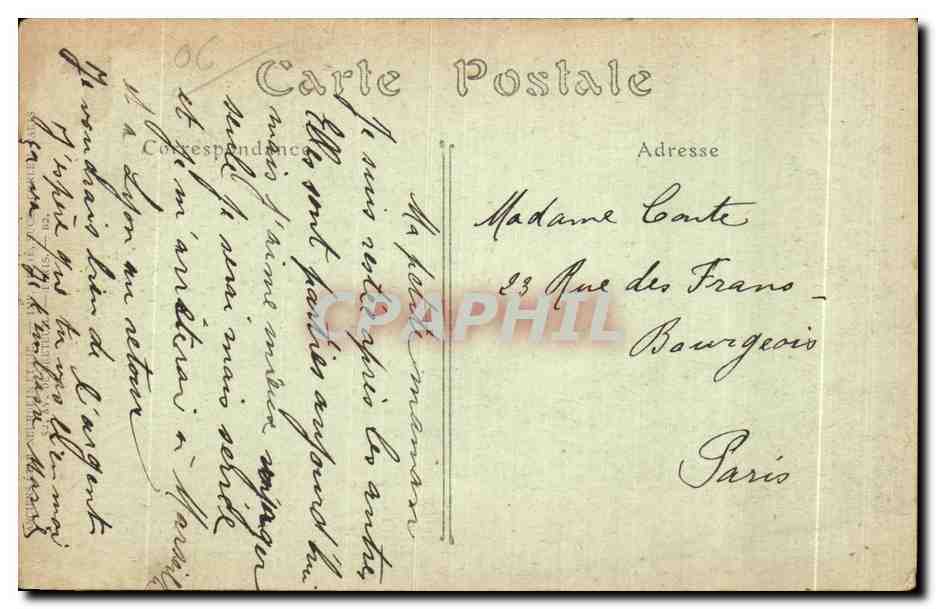 Carte Postale
Correspondance
Adresse
Ma petite maman
Je suis restée après les autres
Elles sont parties aujourd'hui
mais j'aime mieux voyager
seule je serai mais serrée
et je m'arrêterai à Marseille
et à Lyon au retour
Je voudrais bien de l'argent
J'espère que tu vas m'en
ça va Je t'embrasse
Madame Conte
23 Rue des Francs-
Bourgeois
Paris
06
CPAPHIL